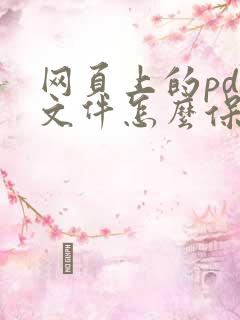 网页上的pd
文件怎麽保